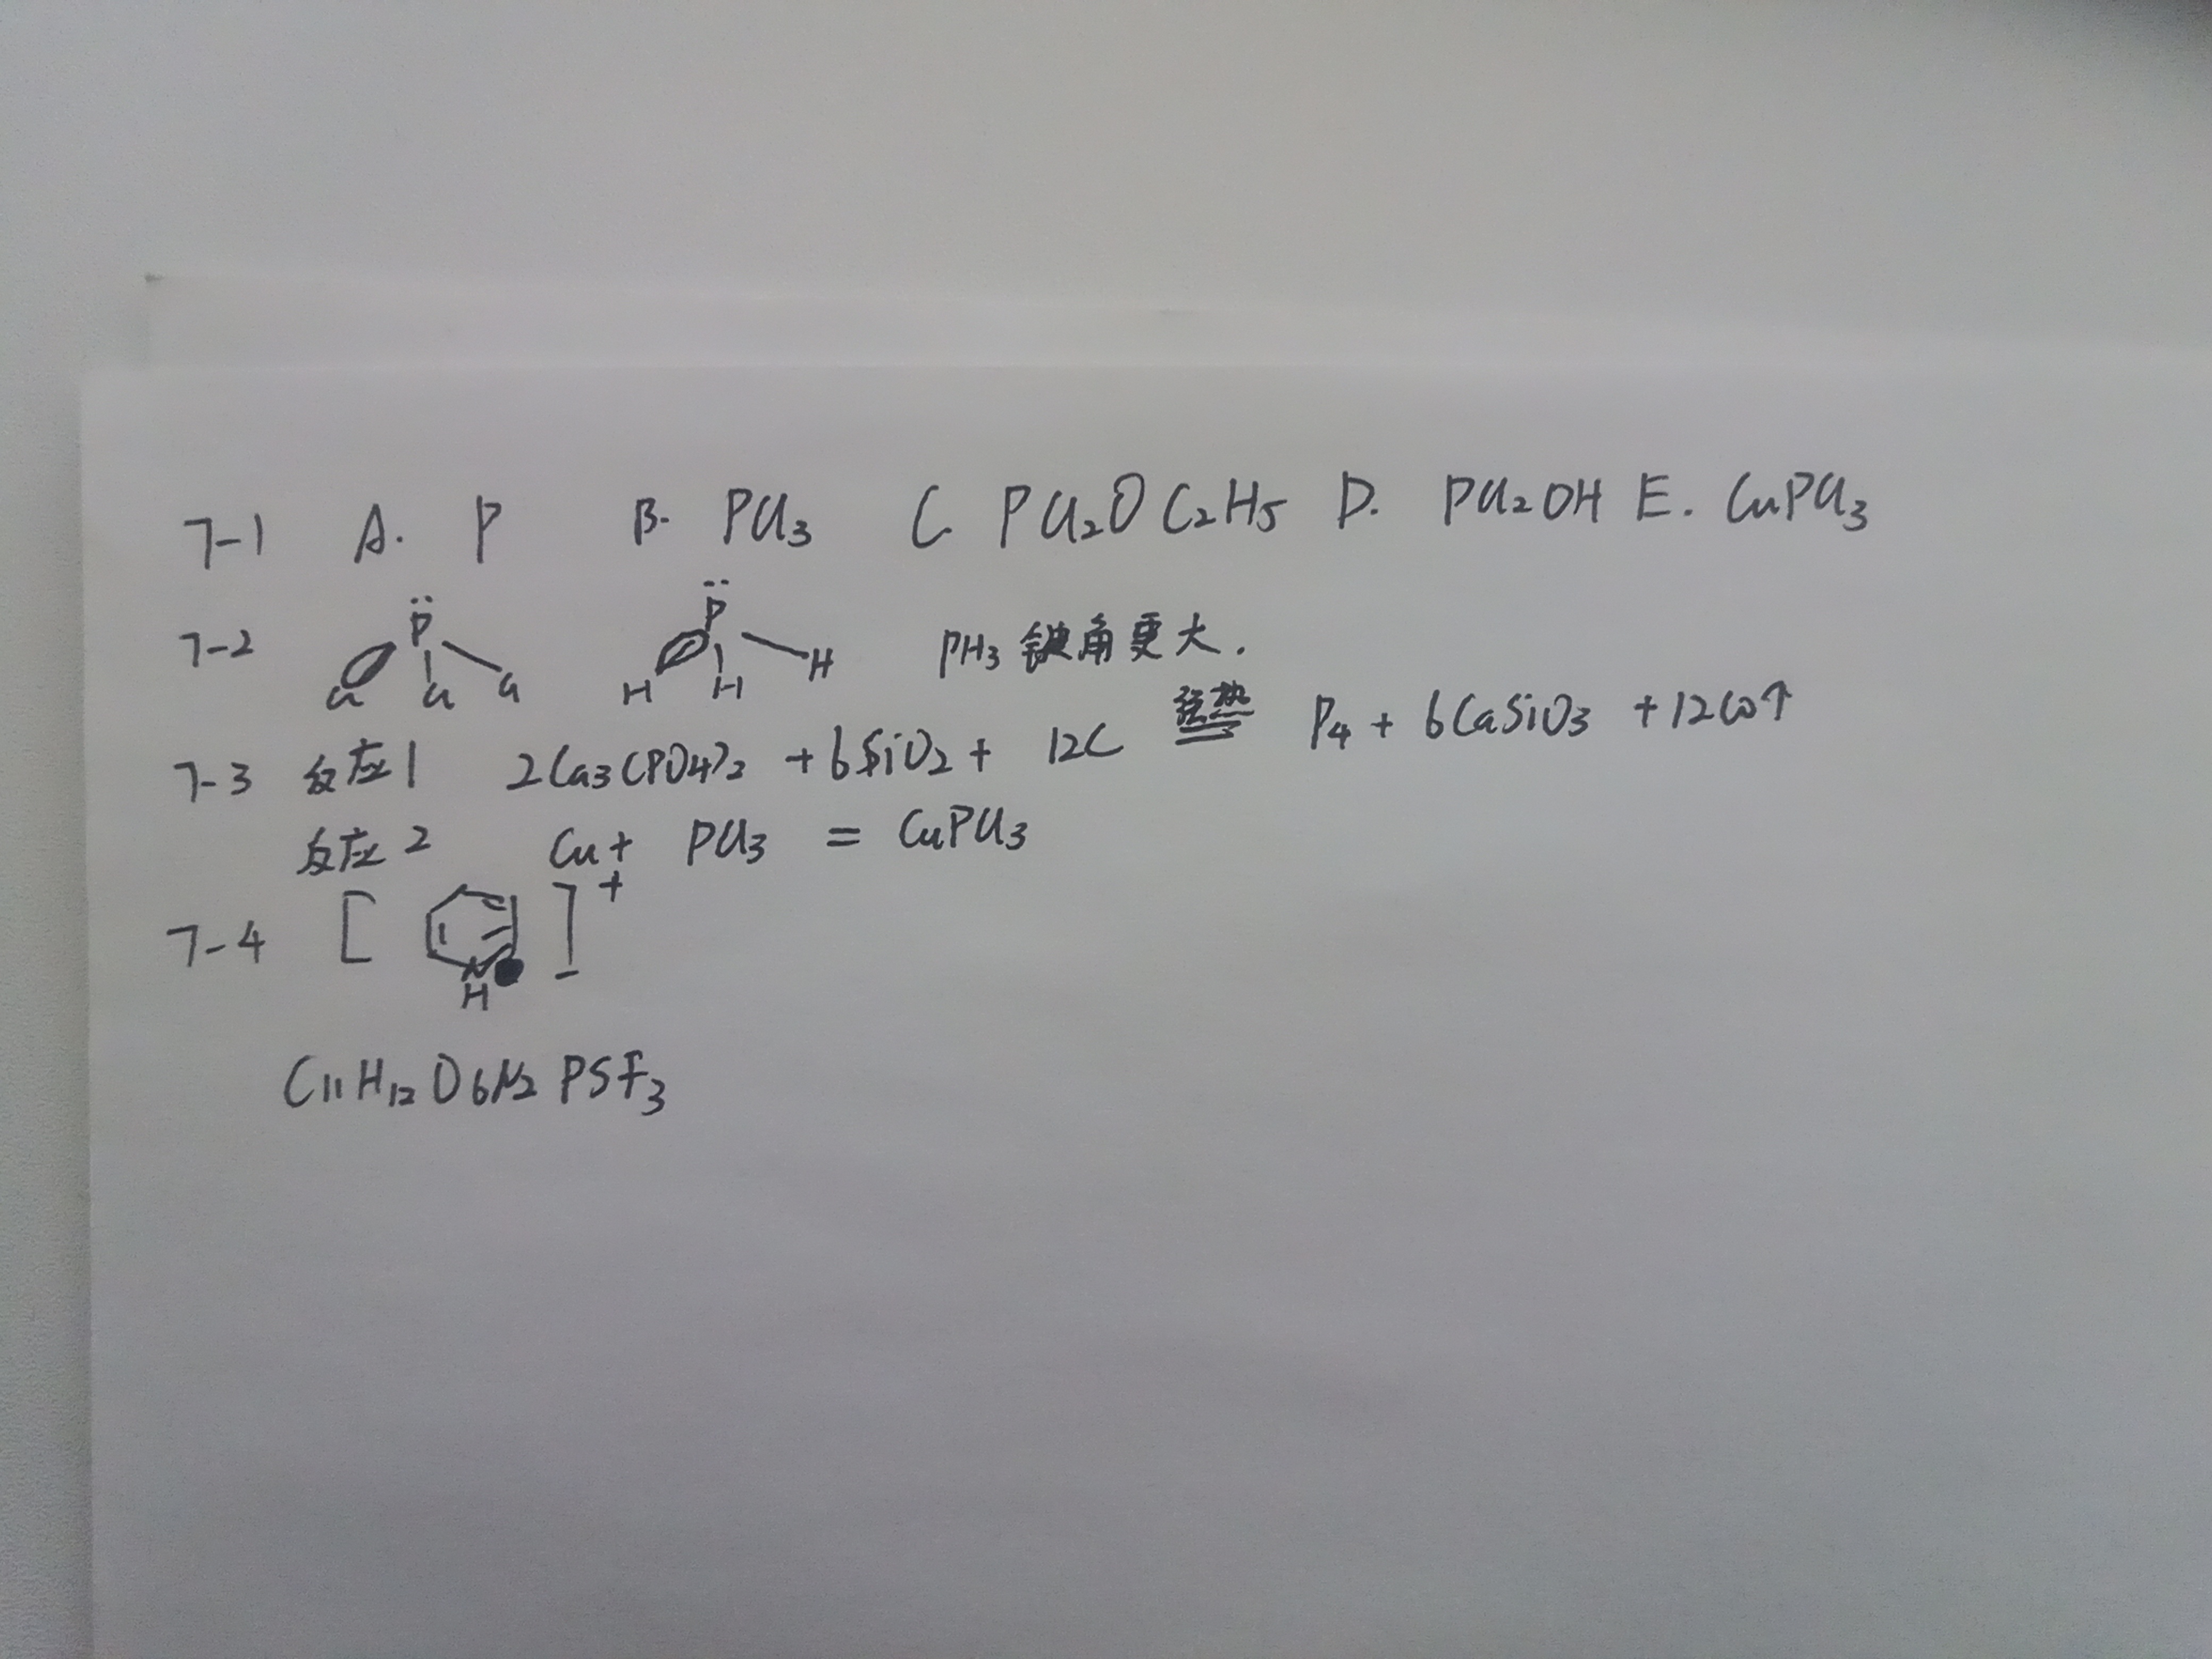 7-1 A. P B. PCl3 C PCl2OC2H5 D. PCl2OH E. CuPCl3
7-2 P Cl Cl Cl P H H H PH3 键角更大.
7-3 反应1 2Ca3(PO4)2 + 6SiO2 + 12C 强热 P4 + 6CaSiO3 + 12CO↑
反应2 Cu + PCl3 = CuPCl3
7-4 [ N H ]+
C11H12O6N2PSF3